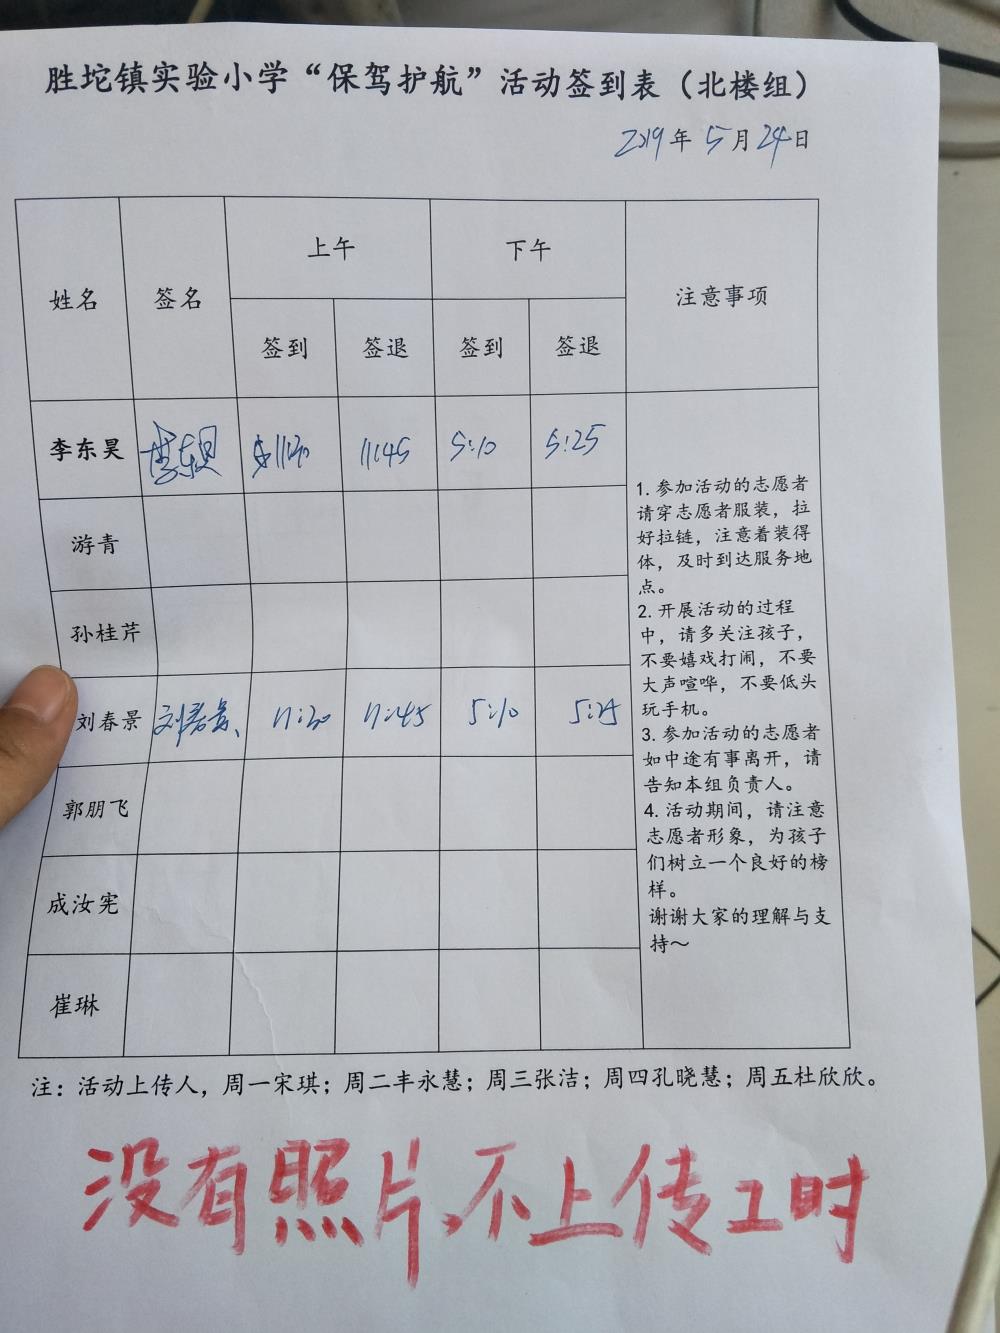 胜坨镇实验小学“保驾护航”活动签到表（北楼组）
2019年5月24日
姓名 签名 上午 下午 注意事项
签到 签退 签到 签退
李东昊 李东昊 11:30 11:45 5:10 5:25
游青
孙桂芹
刘春景 刘春景 11:30 11:45 5:10 5:25
郭朋飞
成汝宪
崔琳
1.参加活动的志愿者
请穿志愿者服装，拉
好拉链，注意着装得
体，及时到达服务地
点。
2.开展活动的过程
中，请多关注孩子，
不要嬉戏打闹，不要
大声喧哗，不要低头
玩手机。
3.参加活动的志愿者
如中途有事离开，请
告知本组负责人。
4.活动期间，请注意
志愿者形象，为孩子
们树立一个良好的榜
样。
谢谢大家的理解与支
持～
注：活动上传人，周一宋琪；周二丰永慧；周三张洁；周四孔晓慧；周五杜欣欣。
没有照片不上传工时